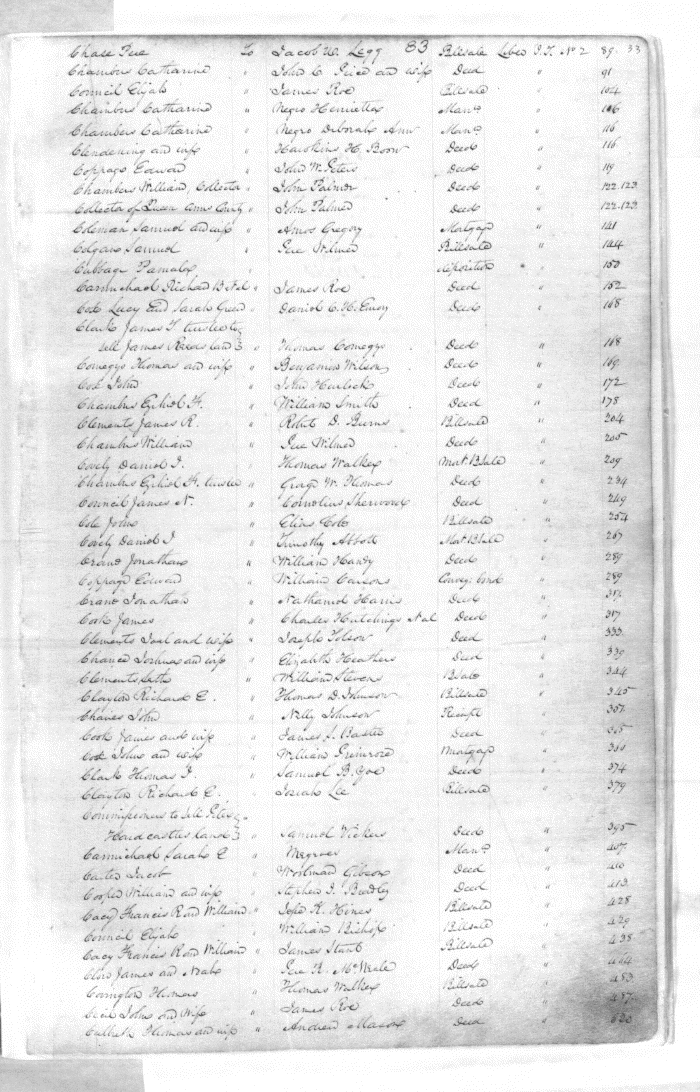 Chase Pere To Jacob W. Legg 83 Billsale Liber J.T. No 2 89. 33
Chambers Catharine " John C. Price and wife Deed " 91
Council Elijah " James Roe Billsale " 104
Chambers Catharine " Negro Henrietta Mano " 106
Chambers Catharine " Negro Deborah Ann Mano " 116
Clendening and wife " Hawkins H. Boon Deed " 116
Coppage Edward " John W. Peters Deed " 119
Chambers William, Collector " John Palmer Deed " 122.123
Collector of Queen Anns County " John Palmer Deed " 122.123
Coleman Samuel and wife " Amos Gregory Mortgage " 141
Samuel " Pere Wilmer Billsale " 144
Cubbage " deposition " 150
Carmichael Richard B. et al " James Roe Deed " 152
Cole Lucy and Sarah Green " Daniel C. H. Emory Deed " 168
Clark James T. trustee to
sell James land " Thomas Comegys Deed " 168
Comegys Thomas and wife " Benjamin Wilson Deed " 169
John " John Hurlock Deed " 172
Chambers Ezekiel F. " William Smith Deed " 178
Clements James R. " Robert D. Burns Billsale " 204
Chambers William " Pere Wilmer Deed " 205
Covely Daniel J. " Thomas Walker B Sale " 209
Chambers Ezekiel F. trustee " George W. Thomas Deed " 234
Council James N. " Cornelius Sherwood Deed " 249
Cole John " Elias Cole Billsale " 254
Covely Daniel J " Timothy Abbott B Sale " 267
Jonathan " William Handy Deed " 289
Coppage Edward " William Convey. " 289
Jonathan " Nathaniel Harris Deed " 316
Cook James " Charles Hutchings et al Deed " 317
Clements Joel and wife " Joseph Deed " 333
Chance Joshua and wife " Elizabeth Heathers Deed " 339
Clements " William Stevens B Sale " 344
Clayton Richard E. " Thomas D. Johnson Billsale " 345
John " Nelly Johnson Receipt "
Cook James and wife " James S. Deed "
John and wife " William Primrose Mortgage "
Clark Thomas J. " Samuel B. Deed " 374
Clayton Richard E. " Josiah Lee Billsale " 379
Commissioners to sell Peter
Hardcastles land " Samuel Vickers Deed " 395
Carmichael Sarah E " Negroes Mano " 407
Carter Jacob " Woolman Gibson Deed " 410
Cooper William and wife " Stephen J. Deed " 413
Cacy Francis R and William " K. Hines Billsale " 428
Council Elijah " William Bishop Billsale " 429
Cacy Francis R and William " James Billsale " 438
James and " Pere Deed "
Covington Thomas " Thomas Walker Billsale " 453
John and Wife " James Roe Deed " 487
Thomas and wife " Andrew Mason Deed "